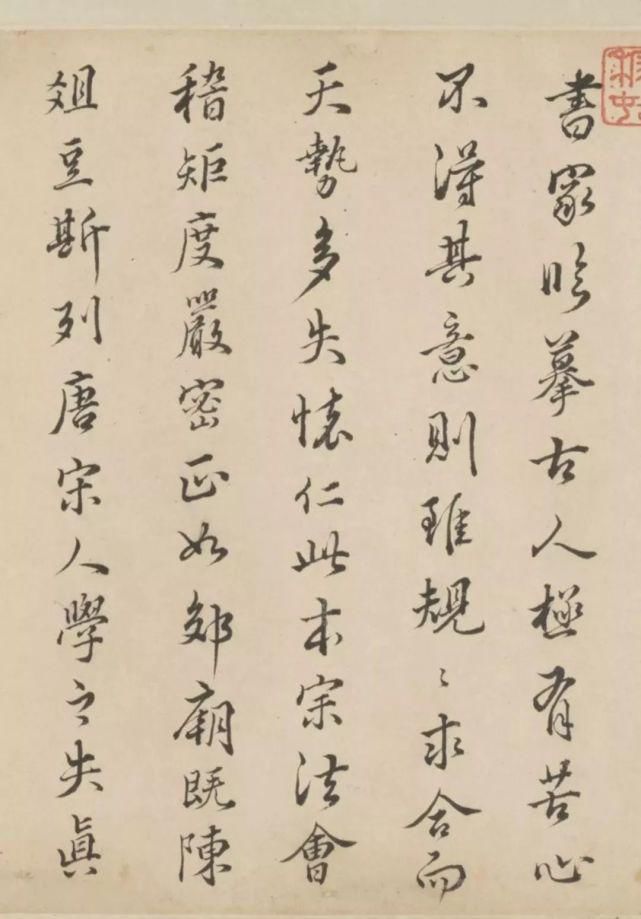 書家臨摹古人極有苦心
不得其意則雖規〻求合而
天勢多失懷仁此本宗法會
稽矩度嚴密正如郊廟既陳
俎豆斯列唐宋人學之失真